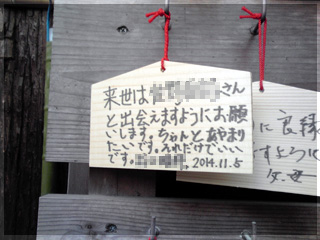 来世は さん
と出会えますようにお願
いします。ちゃんとあやまり
たいです。それだけでいい
です。 2014.11.5
に良縁
すように